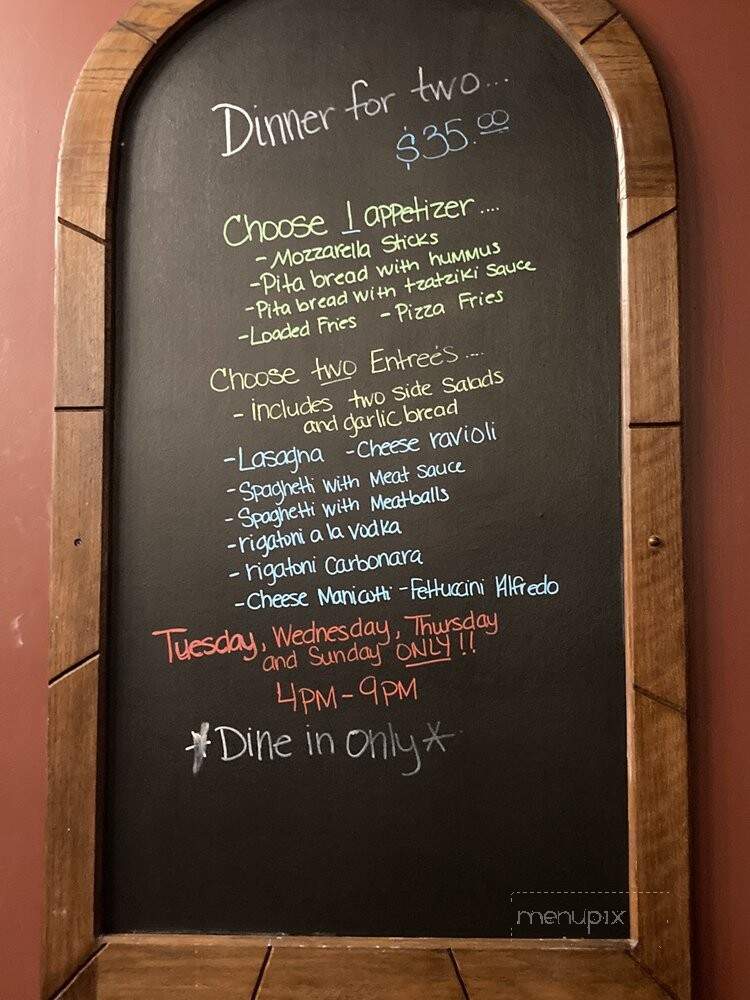 Dinner for two...
$35.00
Choose 1 appetizer....
- Mozzarella Sticks
- Pita bread with hummus
- Pita bread with tzatziki sauce
- Loaded Fries - Pizza Fries
Choose two Entreés....
- includes two side Salads
and garlic bread
- Lasagna - Cheese ravioli
- Spaghetti with Meat sauce
- Spaghetti with Meatballs
- rigatoni a la vodka
- rigatoni Carbonara
- Cheese Manicotti - Fettuccini Alfredo
Tuesday, Wednesday, Thursday
and Sunday ONLY!!
4PM - 9PM
*Dine in only*
menupix